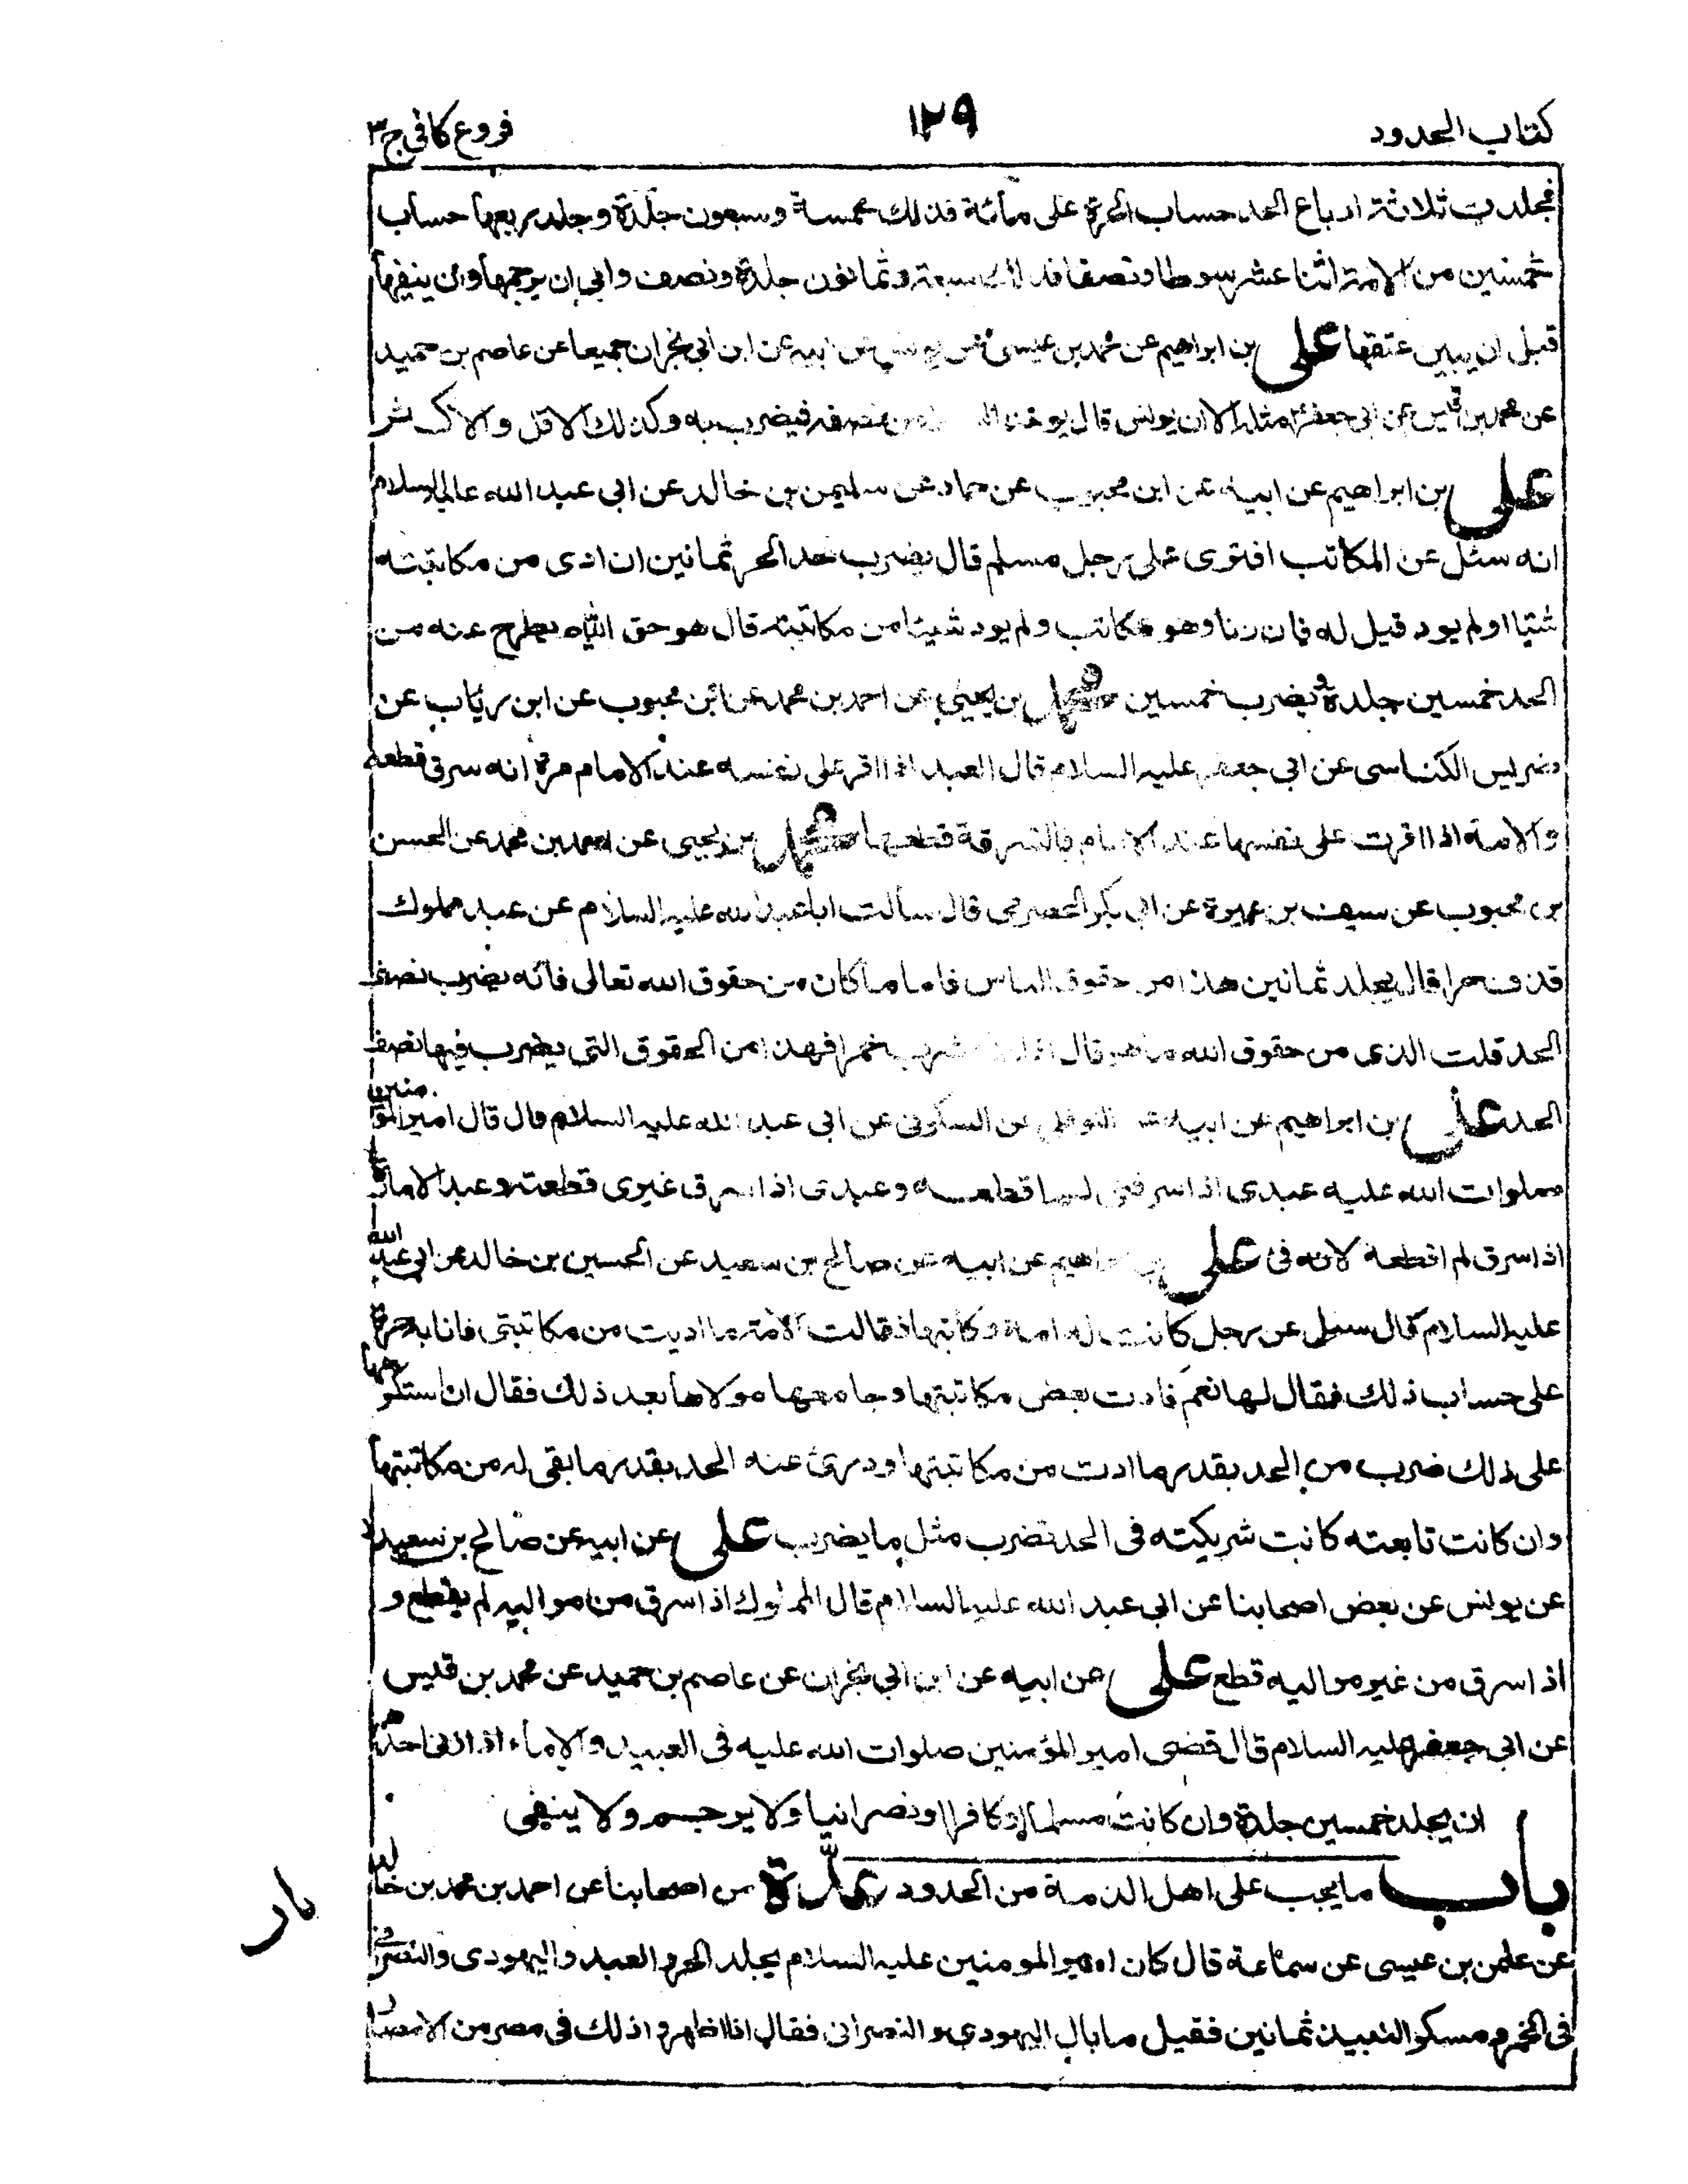 كتاب الحدود ١٢٩ فروع كافي ج٣
فجلدت ثلاثة ارباع الحد حساب الحرة على مائة فذلك خمسة وسبعون جلدة وجلد ربعها حساب
خمسين من الامة اثنا عشر سوطا ونصفا فذلك سبعة وثمانون جلدة ونصف وابى ان يرجمها وان ينفيها
قبل ان يبين عتقها على بن ابراهيم عن محمد بن عيسى عن يونس عن ابيه عن ابن ابي نجران جميعا عن عاصم بن حميد
عن محمد بن قيس عن ابي جعفر مثله الا ان يونس قال يوخذ من نصفه فيضرب به وكذلك الاقل والاكثر
على بن ابراهيم عن ابيه عن ابن محبوب عن حماد عن سليمن بن خالد عن ابي عبد الله عليه السلام
انه سئل عن المكاتب افترى على رجل مسلم قال يضرب حد الحر ثمانين ان ادى من مكاتبته
شيئا او لم يود قيل له فان زنا وهو مكاتب ولم يود شيئا من مكاتبته قال هو حق الله يطرح عنه من
الحد خمسين جلدة ويضرب خمسين محمد بن يحيى عن احمد بن محمد عن ابن محبوب عن ابن رئاب عن
ضريس الكناسى عن ابي جعفر عليه السلام قال العبد اذا اقر على نفسه عند الامام مرة انه سرق قطعه
والامة اذا اقرت على نفسها عند الامام بالسرقة قطعها محمد بن يحيى عن احمد بن محمد عن الحسن
بن محبوب عن سيف بن عميرة عن ابي بكر الحضرمى قال سالت ابا عبد الله عليه السلام عن عبد مملوك
قذف حرا قال يجلد ثمانين هذا من حقوق الناس فاما ما كان من حقوق الله تعالى فانه يضرب نصف
الحد قلت الذى من حقوق الله ما هو قال اذا شرب خمرا فهذا من الحقوق التى يضرب فيها نصف
الحد على بن ابراهيم عن ابيه عن النوفلي عن السكونى عن ابي عبد الله عليه السلام قال قال امير المؤمنين
صلوات الله عليه عبدى اذا سرقنى لم اقطعه وعبدى اذا سرق غيرى قطعته وعبد الامارة
اذا سرق لم اقطعه لانه فئ على بن ابراهيم عن ابيه عن صالح بن سعيد عن الحسين بن خالد عن ابي عبد الله
عليه السلام قال سئل عن رجل كانت له امة وكاتبها فقالت الامة ما اديت من مكاتبتى فانا به حرة
على حساب ذلك فقال لها نعم فادت بعض مكاتبتها وجامعها مولاها بعد ذلك فقال ان استكرهها
على ذلك ضرب من الحد بقدر ما ادت من مكاتبتها ودرئ عنه الحد بقدر ما بقى له من مكاتبتها
وان كانت تابعته كانت شريكته فى الحد تضرب مثل ما يضرب على عن ابيه عن صالح بن سعيد
عن يونس عن بعض اصحابنا عن ابى عبد الله عليه السلام قال المملوك اذا سرق من مواليه لم يقطع و
اذا سرق من غير مواليه قطع على عن ابيه عن ابن ابي نجران عن عاصم بن حميد عن محمد بن قيس
عن ابى جعفر عليه السلام قال قضى امير المؤمنين صلوات الله عليه فى العبيد والاماء اذا زنى احدهم
ان يجلد خمسين جلدة وان كانت مسلما او كافرا او نصرانيا ولا يرجم ولا ينفى
باب ما يجب على اهل الذمة من الحدود عدة من اصحابنا عن احمد بن محمد بن خالد
عن عثمن بن عيسى عن سماعة قال كان امير المومنين عليه السلام يجلد الحر والعبد واليهودى والنصرانى
فى الخمر ومسكر النبيذ ثمانين فقيل ما بال اليهودى والنصرانى فقال اذا اظهروا ذلك فى مصر من الامصار